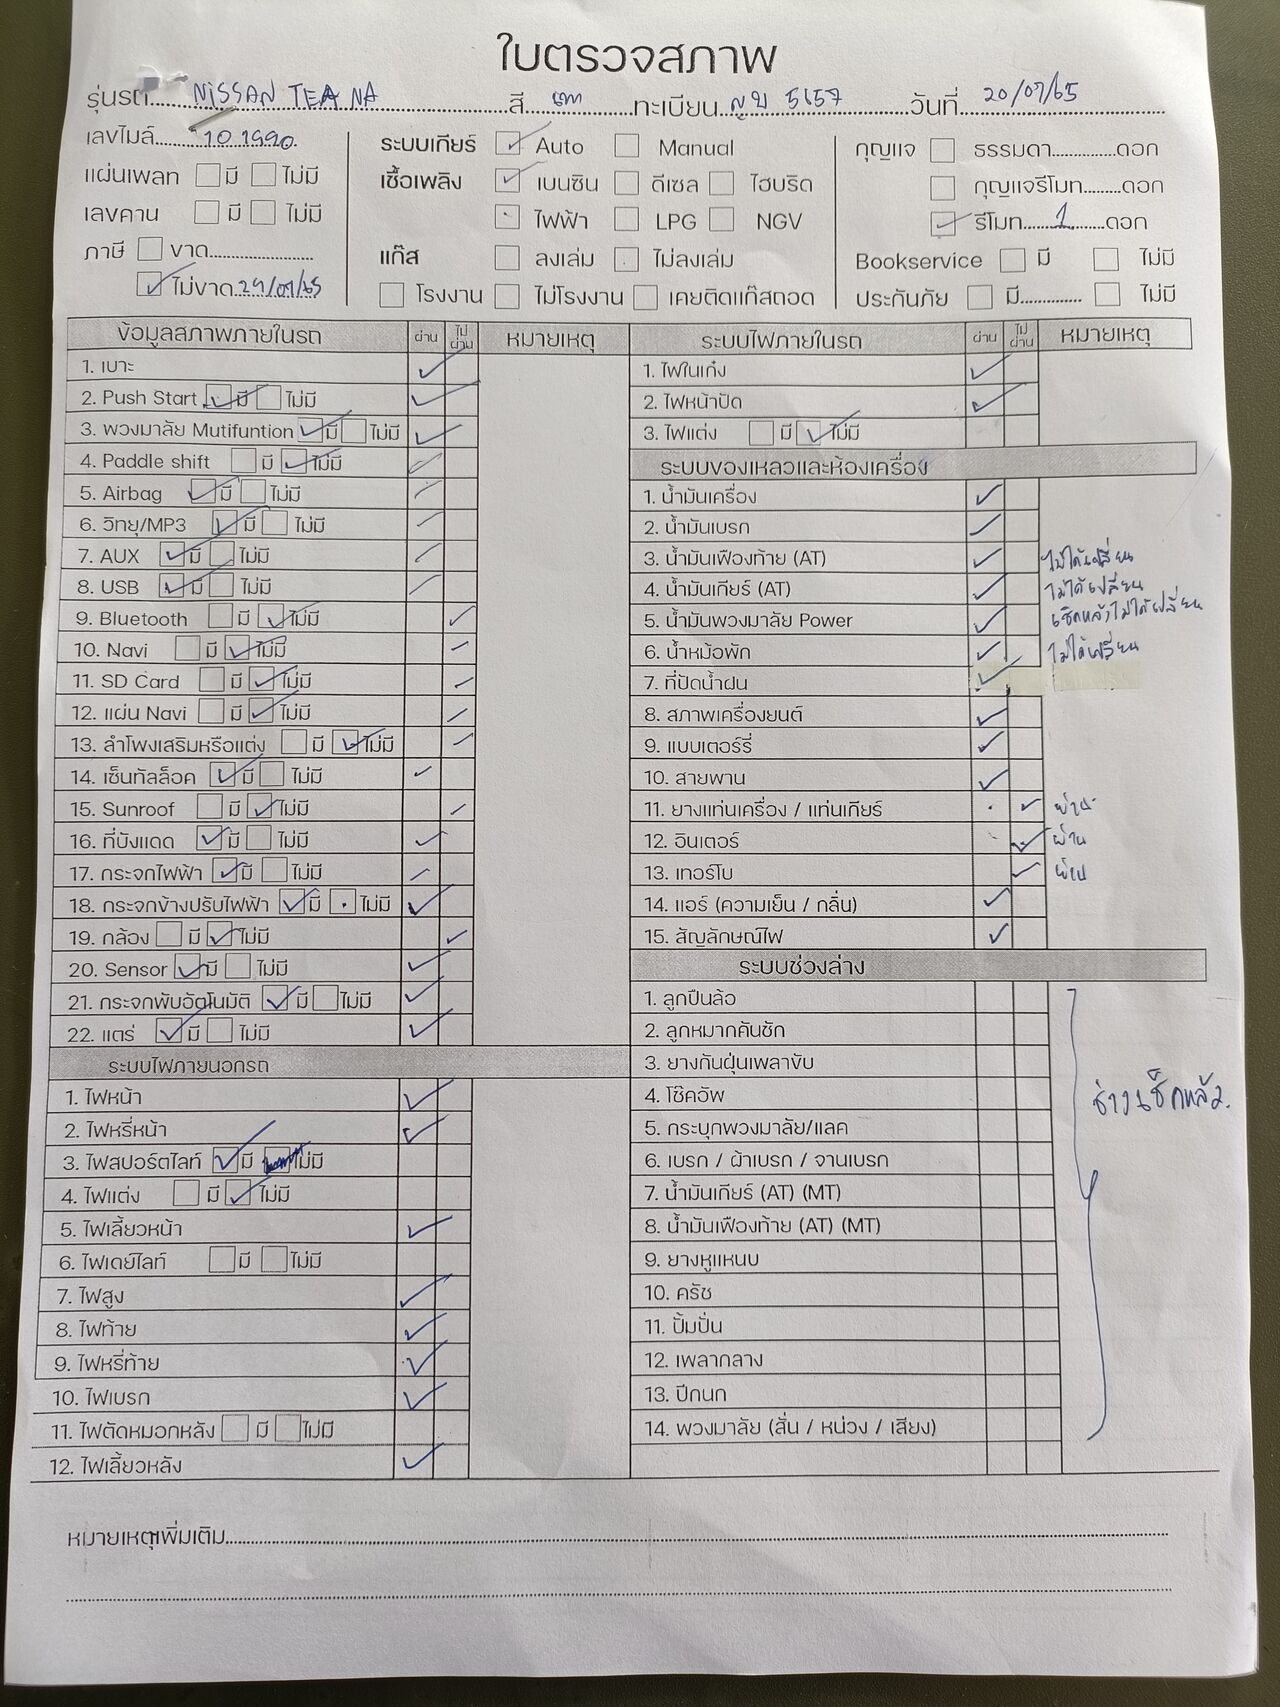 ใบตรวจสภาพ
รุ่นรถ NISSAN TEANA สี เทา ทะเบียน 5657 วันที่ 20/07/65
เลขไมล์ 101990
แผ่นเพลท มี ไม่มี
เลขคาน มี ไม่มี
ภาษี ขาด
ไม่ขาด
ระบบเกียร์ Auto Manual
เชื้อเพลิง เบนซิน ดีเซล ไฮบริด
ไฟฟ้า LPG NGV
แก๊ส ลงเล่ม ไม่ลงเล่ม
โรงงาน ไม่โรงงาน เคยติดแก๊สถอด
กุญแจ ธรรมดา ดอก
กุญแจรีโมท ดอก
รีโมท 1 ดอก
Bookservice มี ไม่มี
ประกันภัย มี ไม่มี
ข้อมูลสภาพภายในรถ ผ่าน ไม่ผ่าน หมายเหตุ
1. เบาะ
2. Push Start มี ไม่มี
3. พวงมาลัย Mutifuntion มี ไม่มี
4. Paddle shift มี ไม่มี
5. Airbag มี ไม่มี
6. วิทยุ/MP3 มี ไม่มี
7. AUX มี ไม่มี
8. USB มี ไม่มี
9. Bluetooth มี ไม่มี
10. Navi มี ไม่มี
11. SD Card มี ไม่มี
12. แผ่น Navi มี ไม่มี
13. ลำโพงเสริมหรือแต่ง มี ไม่มี
14. เซ็นทัลล็อค มี ไม่มี
15. Sunroof มี ไม่มี
16. ที่บังแดด มี ไม่มี
17. กระจกไฟฟ้า มี ไม่มี
18. กระจกข้างปรับไฟฟ้า มี ไม่มี
19. กล้อง มี ไม่มี
20. Sensor มี ไม่มี
21. กระจกพับอัตโนมัติ มี ไม่มี
22. แตร่ มี ไม่มี
ระบบไฟภายนอกรถ
1. ไฟหน้า
2. ไฟหรี่หน้า
3. ไฟสปอร์ตไลท์ มี ไม่มี
4. ไฟแต่ง มี ไม่มี
5. ไฟเลี้ยวหน้า
6. ไฟเดย์ไลท์ มี ไม่มี
7. ไฟสูง
8. ไฟท้าย
9. ไฟหรี่ท้าย
10. ไฟเบรก
11. ไฟตัดหมอกหลัง มี ไม่มี
12. ไฟเลี้ยวหลัง
ระบบไฟภายในรถ ผ่าน ไม่ผ่าน หมายเหตุ
1. ไฟในเก๋ง
2. ไฟหน้าปัด
3. ไฟแต่ง มี ไม่มี
ระบบของเหลวและห้องเครื่อง
1. น้ำมันเครื่อง
2. น้ำมันเบรก
3. น้ำมันเฟืองท้าย (AT) ไม่ได้เปลี่ยน
4. น้ำมันเกียร์ (AT) ไม่ได้เปลี่ยน
5. น้ำมันพวงมาลัย Power เช็คแล้วไม่ได้เปลี่ยน
6. น้ำหม้อพัก ไม่ได้เปลี่ยน
7. ที่ปัดน้ำฝน
8. สภาพเครื่องยนต์
9. แบบเตอร์รี่
10. สายพาน
11. ยางแท่นเครื่อง / แท่นเกียร์ ผ่าน
12. อินเตอร์ ผ่าน
13. เทอร์โบ ผ่าน
14. แอร์ (ความเย็น / กลิ่น)
15. สัญลักษณ์ไฟ
ระบบช่วงล่าง
1. ลูกปืนล้อ
2. ลูกหมากคันชัก
3. ยางกันฝุ่นเพลาขับ
4. โช๊คอัพ
5. กระบุกพวงมาลัย/แลค
6. เบรก / ผ้าเบรก / จานเบรก
7. น้ำมันเกียร์ (AT) (MT)
8. น้ำมันเฟืองท้าย (AT) (MT)
9. ยางหูแหนบ
10. ครัช
11. ปั้มปั่น
12. เพลากลาง
13. ปีกนก
14. พวงมาลัย (สั่น / หน่วง / เสียง)
ช่างเช็คแล้ว
หมายเหตุเพิ่มเติม